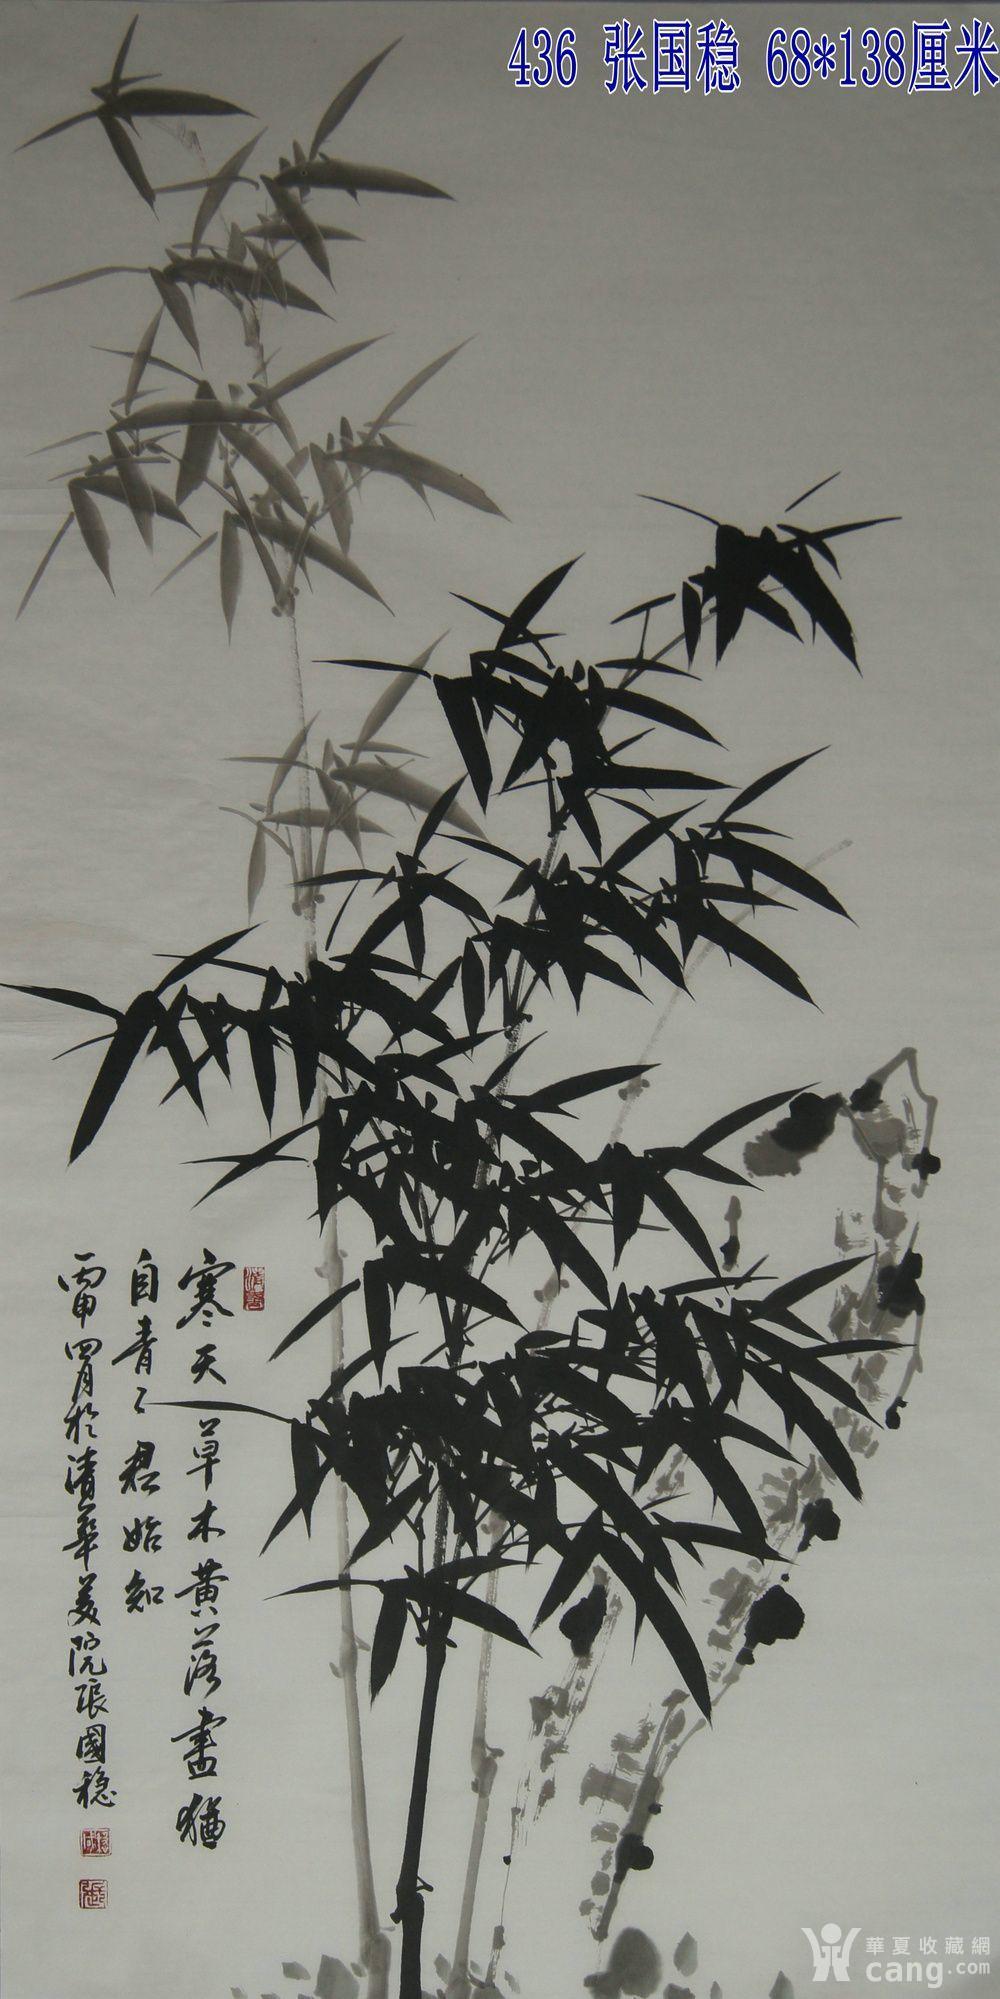 436 张国稳 68*138厘米
寒天草木黄落盡猶
自青々君始知
丙申四月於清華美院張國稳
華夏收藏網
cang.com